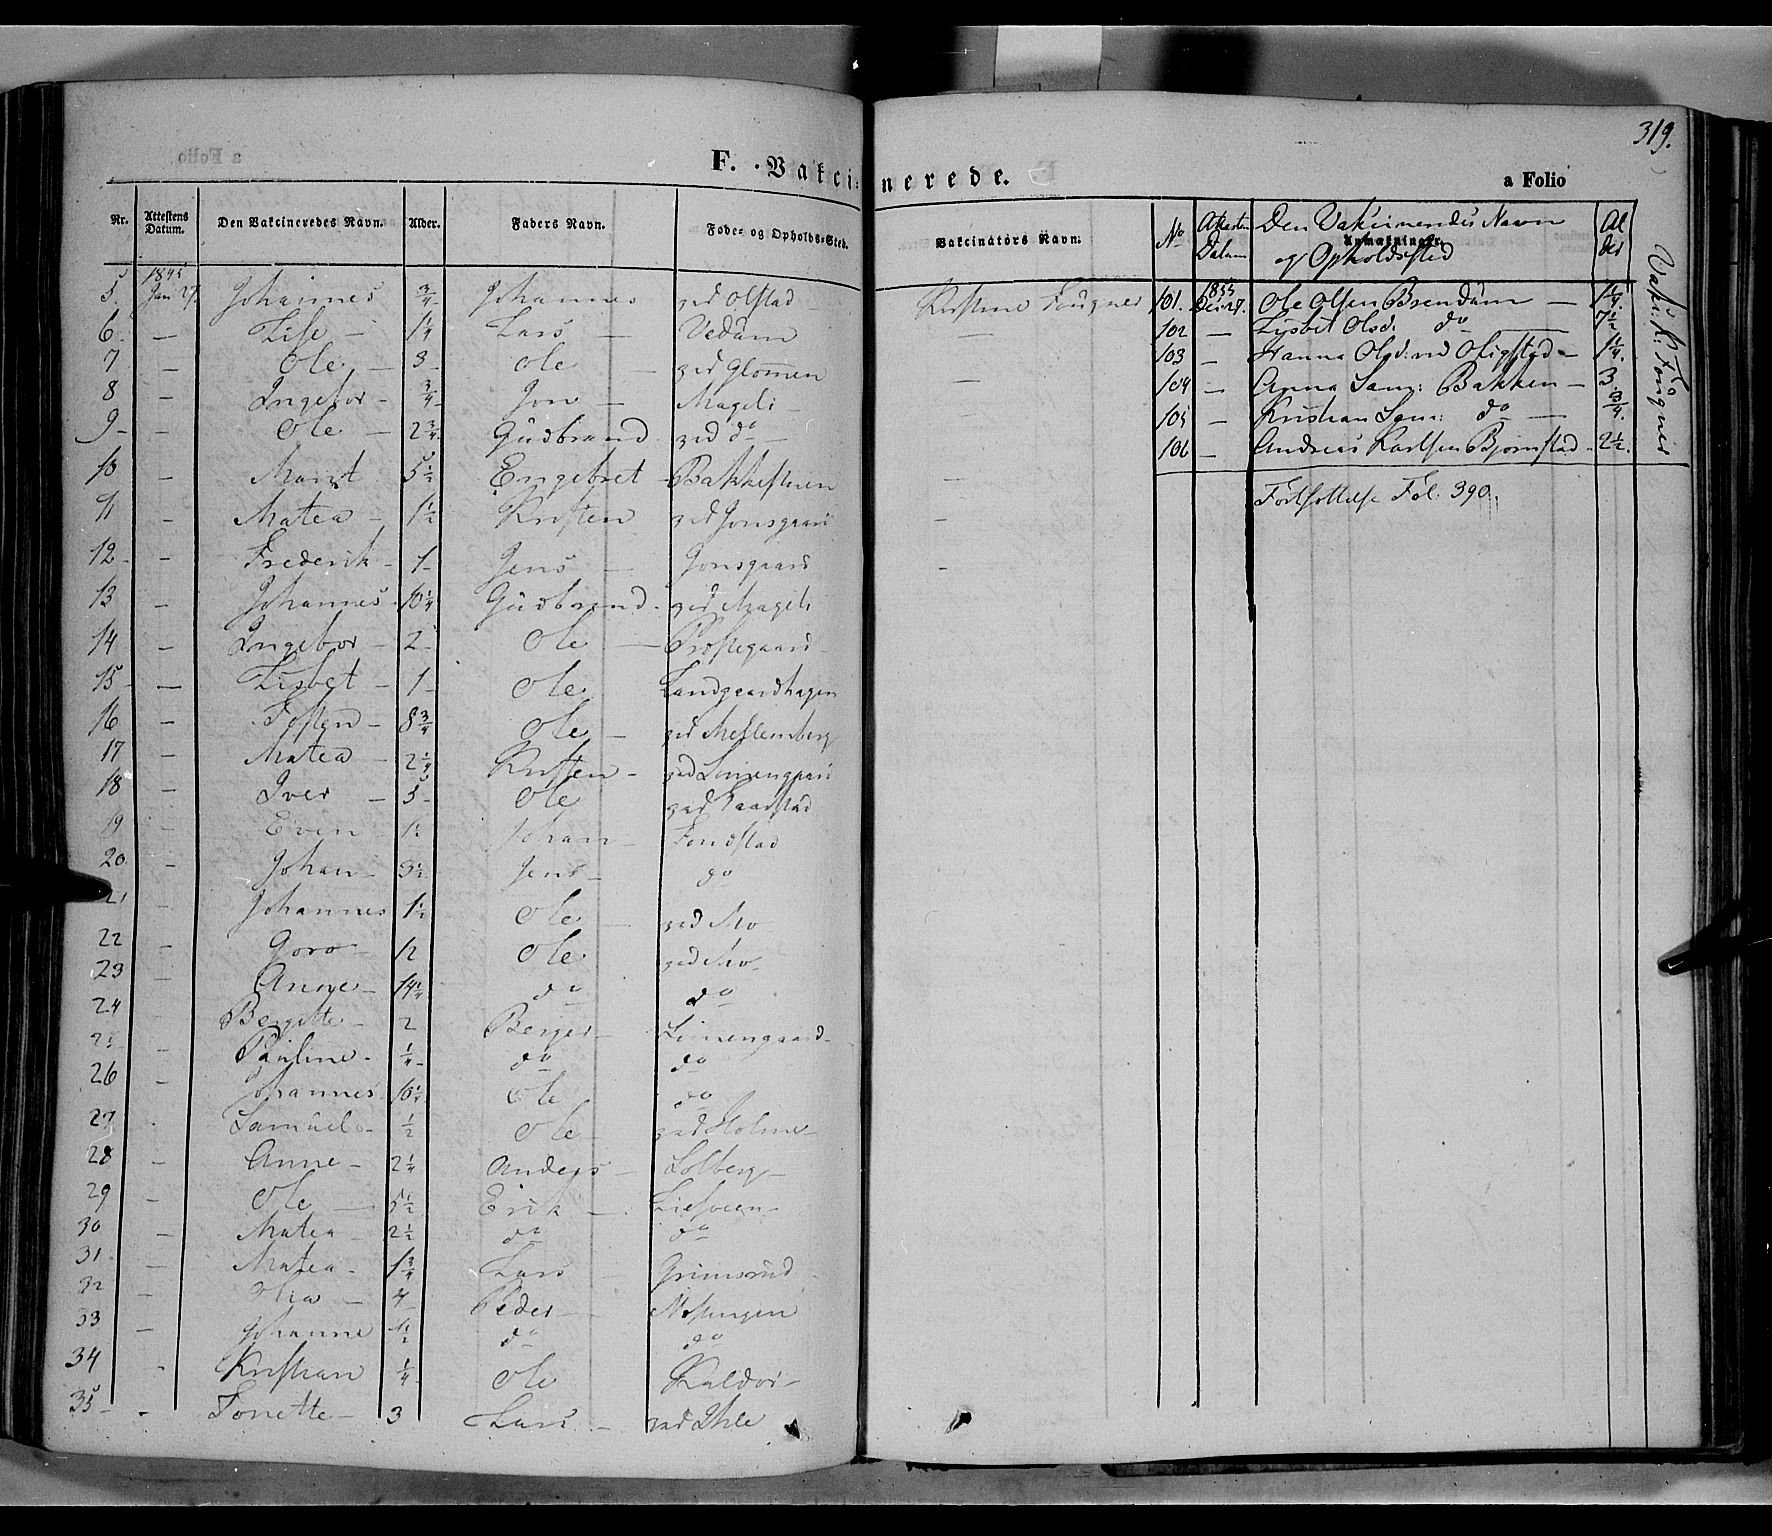 319.
F. Vakcinerede.
a Folio
Nr. Attestens Datum. Den Vakcineredes Navn. Alder. Faders Navn. Føde- og Opholds-Sted. Vakcinatørs Navn. Anmærkninger.
5. 1845 Jan 27. Johannes 3/4 Johannes ged Olstad Kristine Fougner
6 – Lise – 1 1/4 Lars – Vedum –
7 – Ole – 3 – Ole – ged Glømen
8 – Ingebor – 3/4 Jon – Mageli –
9 – – Ole – 2 3/4 Gudbrand ged do
10 – Marit 5 1/2 Engebret – Bakkestuen –
11 – Matea – 1 1/2 Kristen ged Jonsgaard –
12 – – Frederik – 1 – Jens – Jonsgaard –
13 – Johannes 10 1/4 Gudbrand – ged Mageli
14 – Ingebor – 2 – Ole – Prestegaard
15 – – Lisbet – 1 – Ole Landgaardhagen
16 – Tosten – 8 3/4 Ole – ged Mellemberg
17 – Matea – 2 1/4 Kristen – ged Linnengaard
18 – Iver – 5 – Ole ged Kaarstad
19 – Even 1 1/2 Johan – Fondstad
20 – Johan – 3 1/2 Jens – do
21 Johannes 1 1/2 Ole – ged Mo
22 – Goro – 12 Ole ged Mo
23 – Anne – 14 1/4 do do
24 Bergitte – 2 Berger – Linnengaard –
25 – Pauline – 1/4 do do
26 – Johannes 10 1/2 Ole do
27 Samuel – 1/2 Ole – ged Holme –
28 – Anne – 2 1/4 Anders – Solberg –
29 – Ole – 5 1/2 Erik – Liesveen –
30 – Matea 2 1/2 do do
31 – Matea – 1 3/4 Lars – Grimsrud
32 – Olia – 4 Peder – Mosengen
33 – Johanne 1 1/2 do do
34 – Kristian 1/4 – Ole Kaldor –
35 – – Tonette – 3 Lars – ged Uhle
No Attestens Datum Den Vaksinerendes Navn og Opholdssted Alder
101. 1855 Dec. 27. Ole Olsen Brendum – 1 1/4.
102 – Lisbet Olsd. do – 7 1/2
103 – Hanna Olsd. ved Oligstad – 1 1/4.
104 – Anna Sam: Bakken – 3.
105 – Kristian Sam: do – 3/4.
106 – Andreas Karlsen Bjørnstad – 2 1/2.
Fortsættelse Fol. 390.
Vaks: K. Fougner